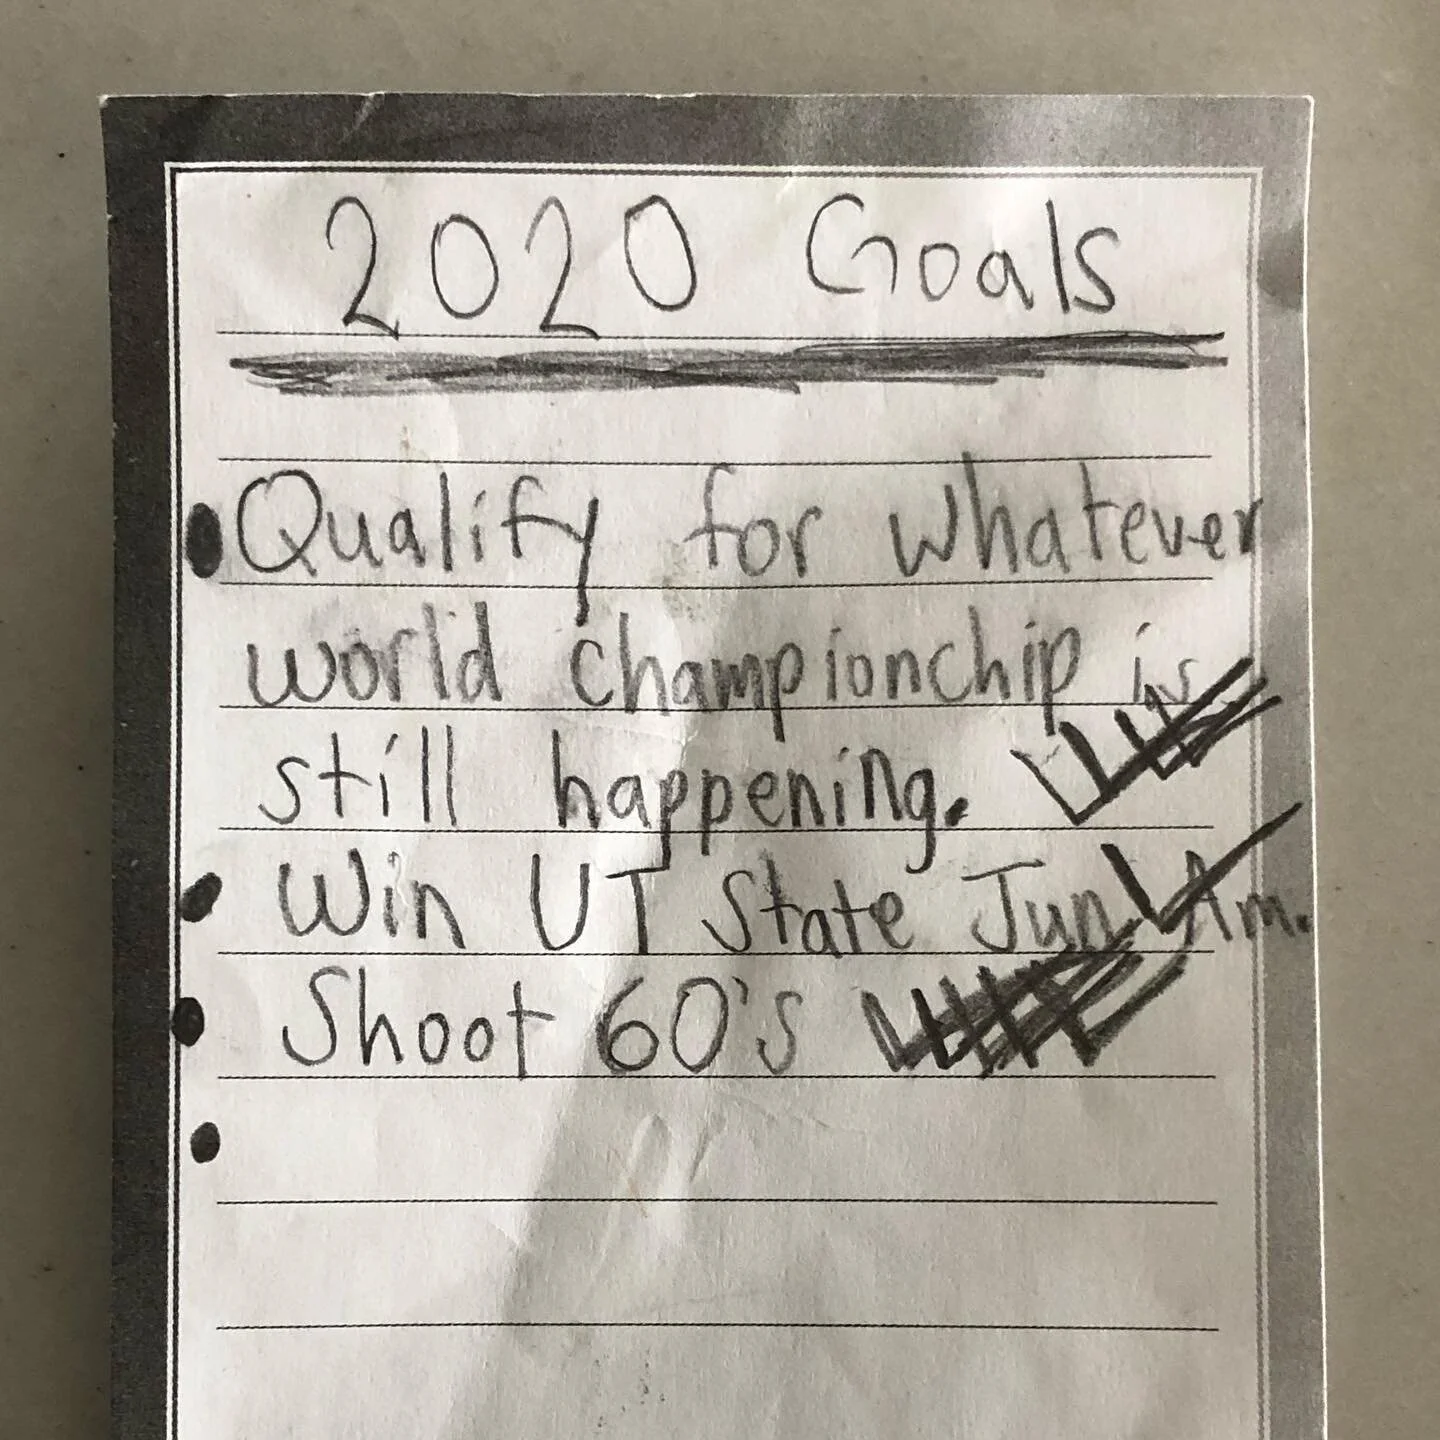 2020 Goals
Qualify for whatever
world championchip is
still happening.
Win UT State Jun Am.
Shoot 60's